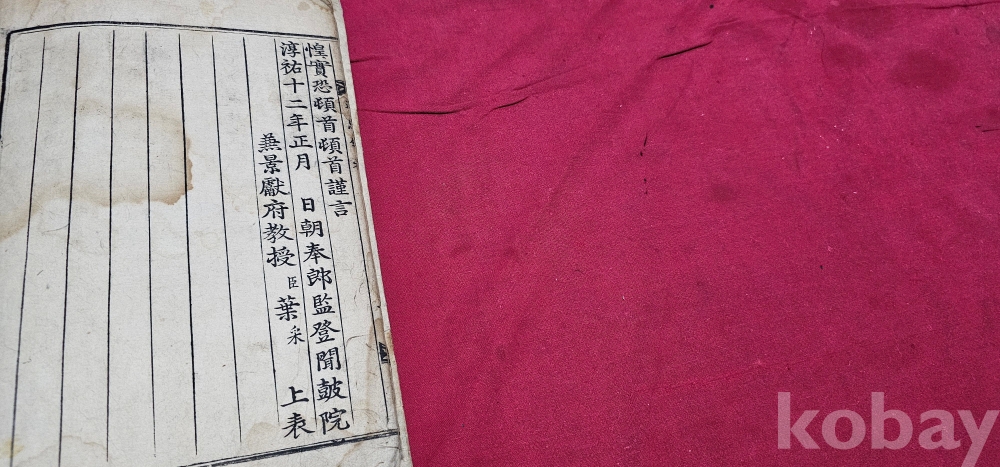 惶實恐頓首頓首謹言
淳祐十二年正月 日朝奉郎監登聞皷院
兼景獻府教授臣葉采 上表
kobay